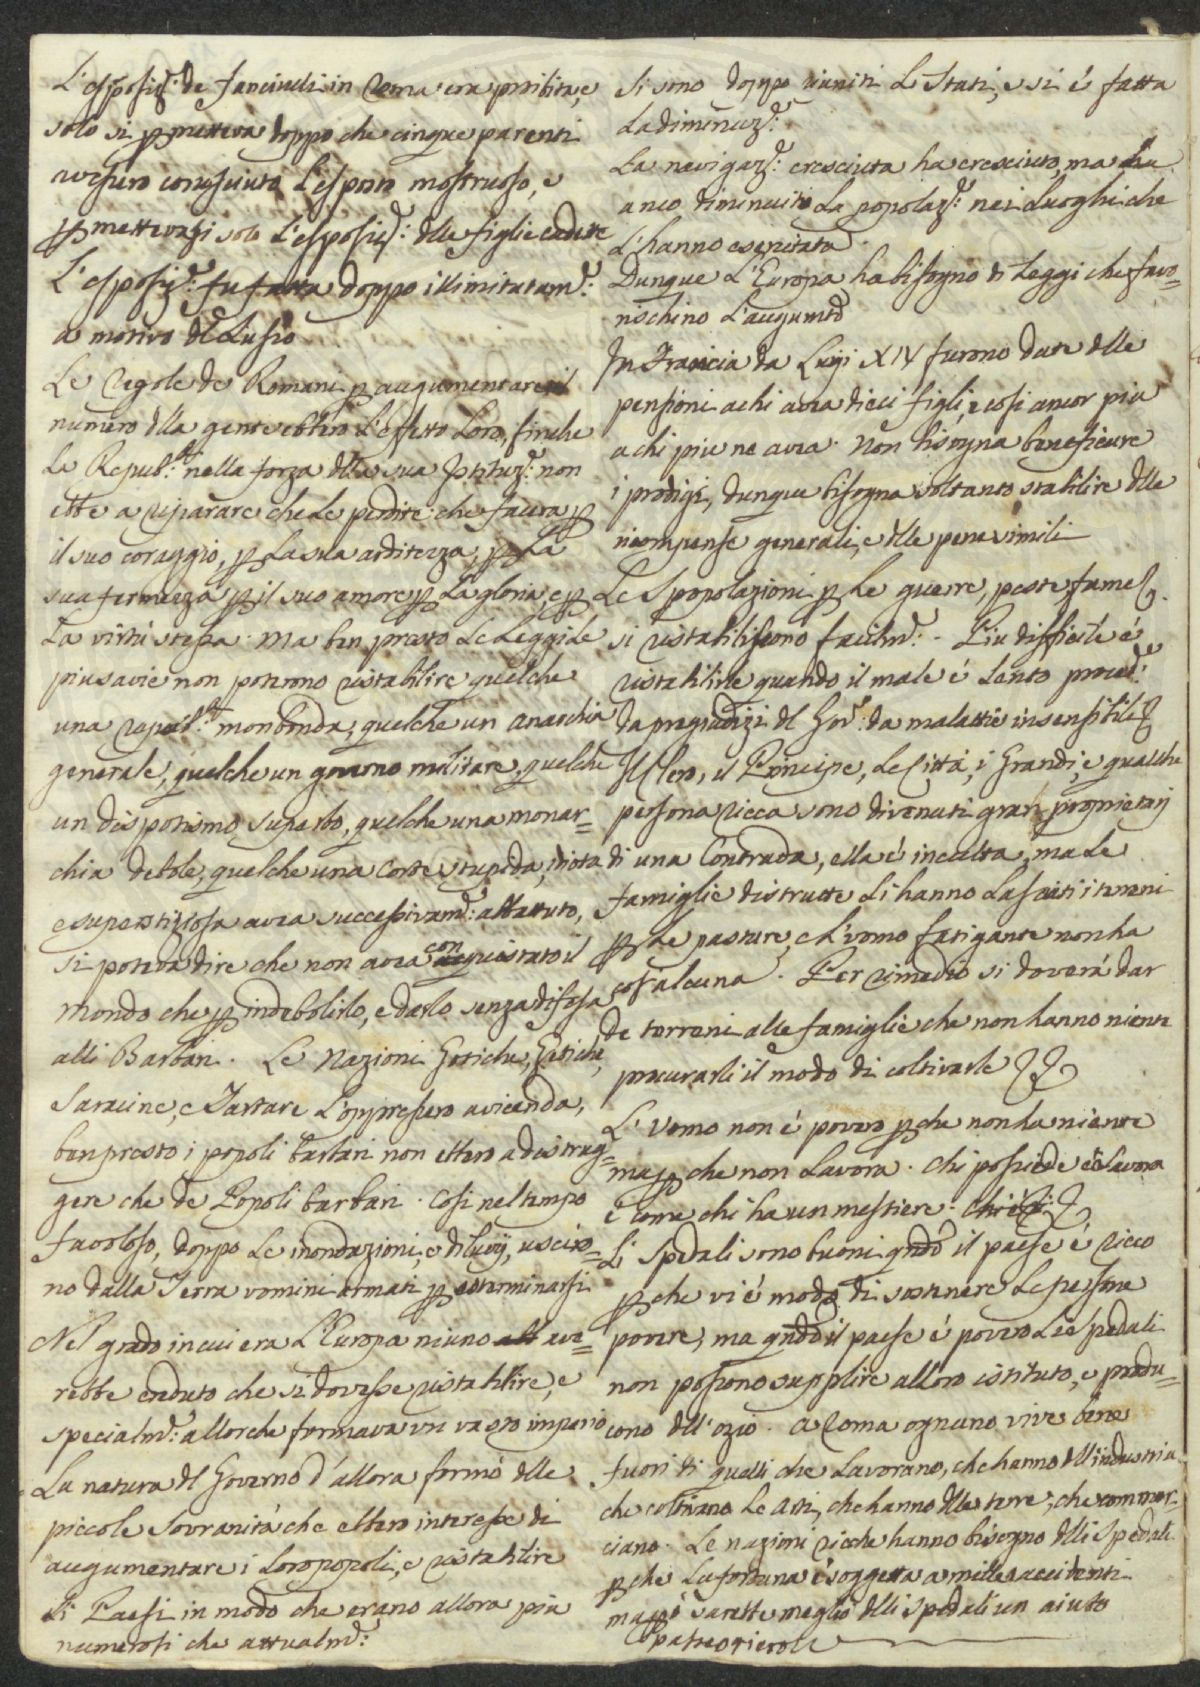 L'esposiz.e de fanciulli in Roma era proibita, e
solo si p metteva doppo che cinque parenti
avessero conosciuto L'esposto mostruoso, e
p mettevasi solo L'esposiz.e: dlle figlie cadette
L'esposiz.e: fu fatta doppo illimitatam.e:
a motivo dl Lusso
Le regole de Romani p augumentare il
numero dlla gente ebbero L'effetto Loro, finche
La Repub.ca nella forza dlla sua Istituz.e: non
ebbe a riparare che Le perdite che faceva p
il suo coraggio, p La sua arditezza, p La
sua fermezza p il suo amore p La gloria, e p
La virtú stessa. Ma ben presto Le Leggi Le
piu savie non poterono ristabilire quelche
una repub.ca moribonda, quelche un anarchia
generale, quelche un governo militare, quelche
un dispotismo superbo, quelche una monar=
chia debole, quelche una Corte stupida, idiota
e superstiziosa avea successivam.e: abbattuto,
si poteva dire che non avea conquistato il
mondo che p indebolirlo, e darlo senza difesa
alli Barbari. Le Nazioni Gotiche, Getiche,
Saracine, e Tartare L'oppressero a vicenda,
ben presto i popoli barbari non ebbero a distrug=
gere che de Popoli barbari. Cosi nel tempo
favoloso, doppo Le inondazioni, e diluvij, usciro=
no dalla Terra uomini armati p esterminarsi
Nel grado in cui era L'Europa niuno avr
rebbe creduto che si dovesse ristabilire, e
specialm.e: allorche formava un vasto imperio
La natura dl Governo d'allora formó dlle
piccole Sovranitá che ebbero interesse di
augumentare i Loro popoli, e ristabilire
Li Paesi in modo che erano allora piu
numerosi che attualm.e:
Si sono doppo riuniti Li Stati, e si é fatta
La diminuz.e:
La navigaz.e: cresciuta ha cresciuto, ma ha
anco diminuito La popolaz.e: nei Luoghi che
L'hanno esercitata.
Dunque L'Europa ha bisogno di Leggi che favo=
rischino L'augumto
In Francia da Luigi XIV furono date dlle
pensioni a chi avea dieci figli, e cosi ancor piu
a chi piu ne avea. Non bisogna beneficare
i prodigi, dunque bisogna soltanto stabilire dlle
ricompense generali, e dlle pene simili
Le Spopolazioni p Le guerre, peste fame &.
si ristabiliscono facilm.e:. Piu difficile é
ristabilirle quando il male é Lento proced.e:
da pregiudizj dl Gov.o: da malattie insensibili &
Il Clero, il Principe, Le Cittá, i Grandi, e qualche
persona ricca sono divenuti gran proprietarj
di una Contrada, ella é incolta, ma Le
famiglie distrutte Li hanno Lasciati i terreni
p Le pasture, e L'uomo fatigante non ha
cos'alcuna. Per rimedio si doverá dar
de terreni alle famiglie che non hanno niente
procurarli il modo di coltivarle &&
L'Uomo non é povero p che non ha niente
ma p che non Lavora. Chi possiede e Lavora
é come chi ha un mestiere.
Li Spedali sono buoni qndo il paese é ricco
p che vi é modo di sostenere Le persone
povere, ma qndo il paese é povero Li Spedali
non possono supplire alloro istituto, e produ=
cono dll'ozio. A Roma ognuno vive bene
fuori di quelli che Lavorano, che hanno dll'industria
che coltivano Le Arti, che hanno dlle terre, che commer=
ciano. Le nazioni ricche hanno bisogno dlli Spedali
p che La fortuna é soggetta a mille accidenti
ma p ó sarebbe meglio dlli Spedali un aiuto